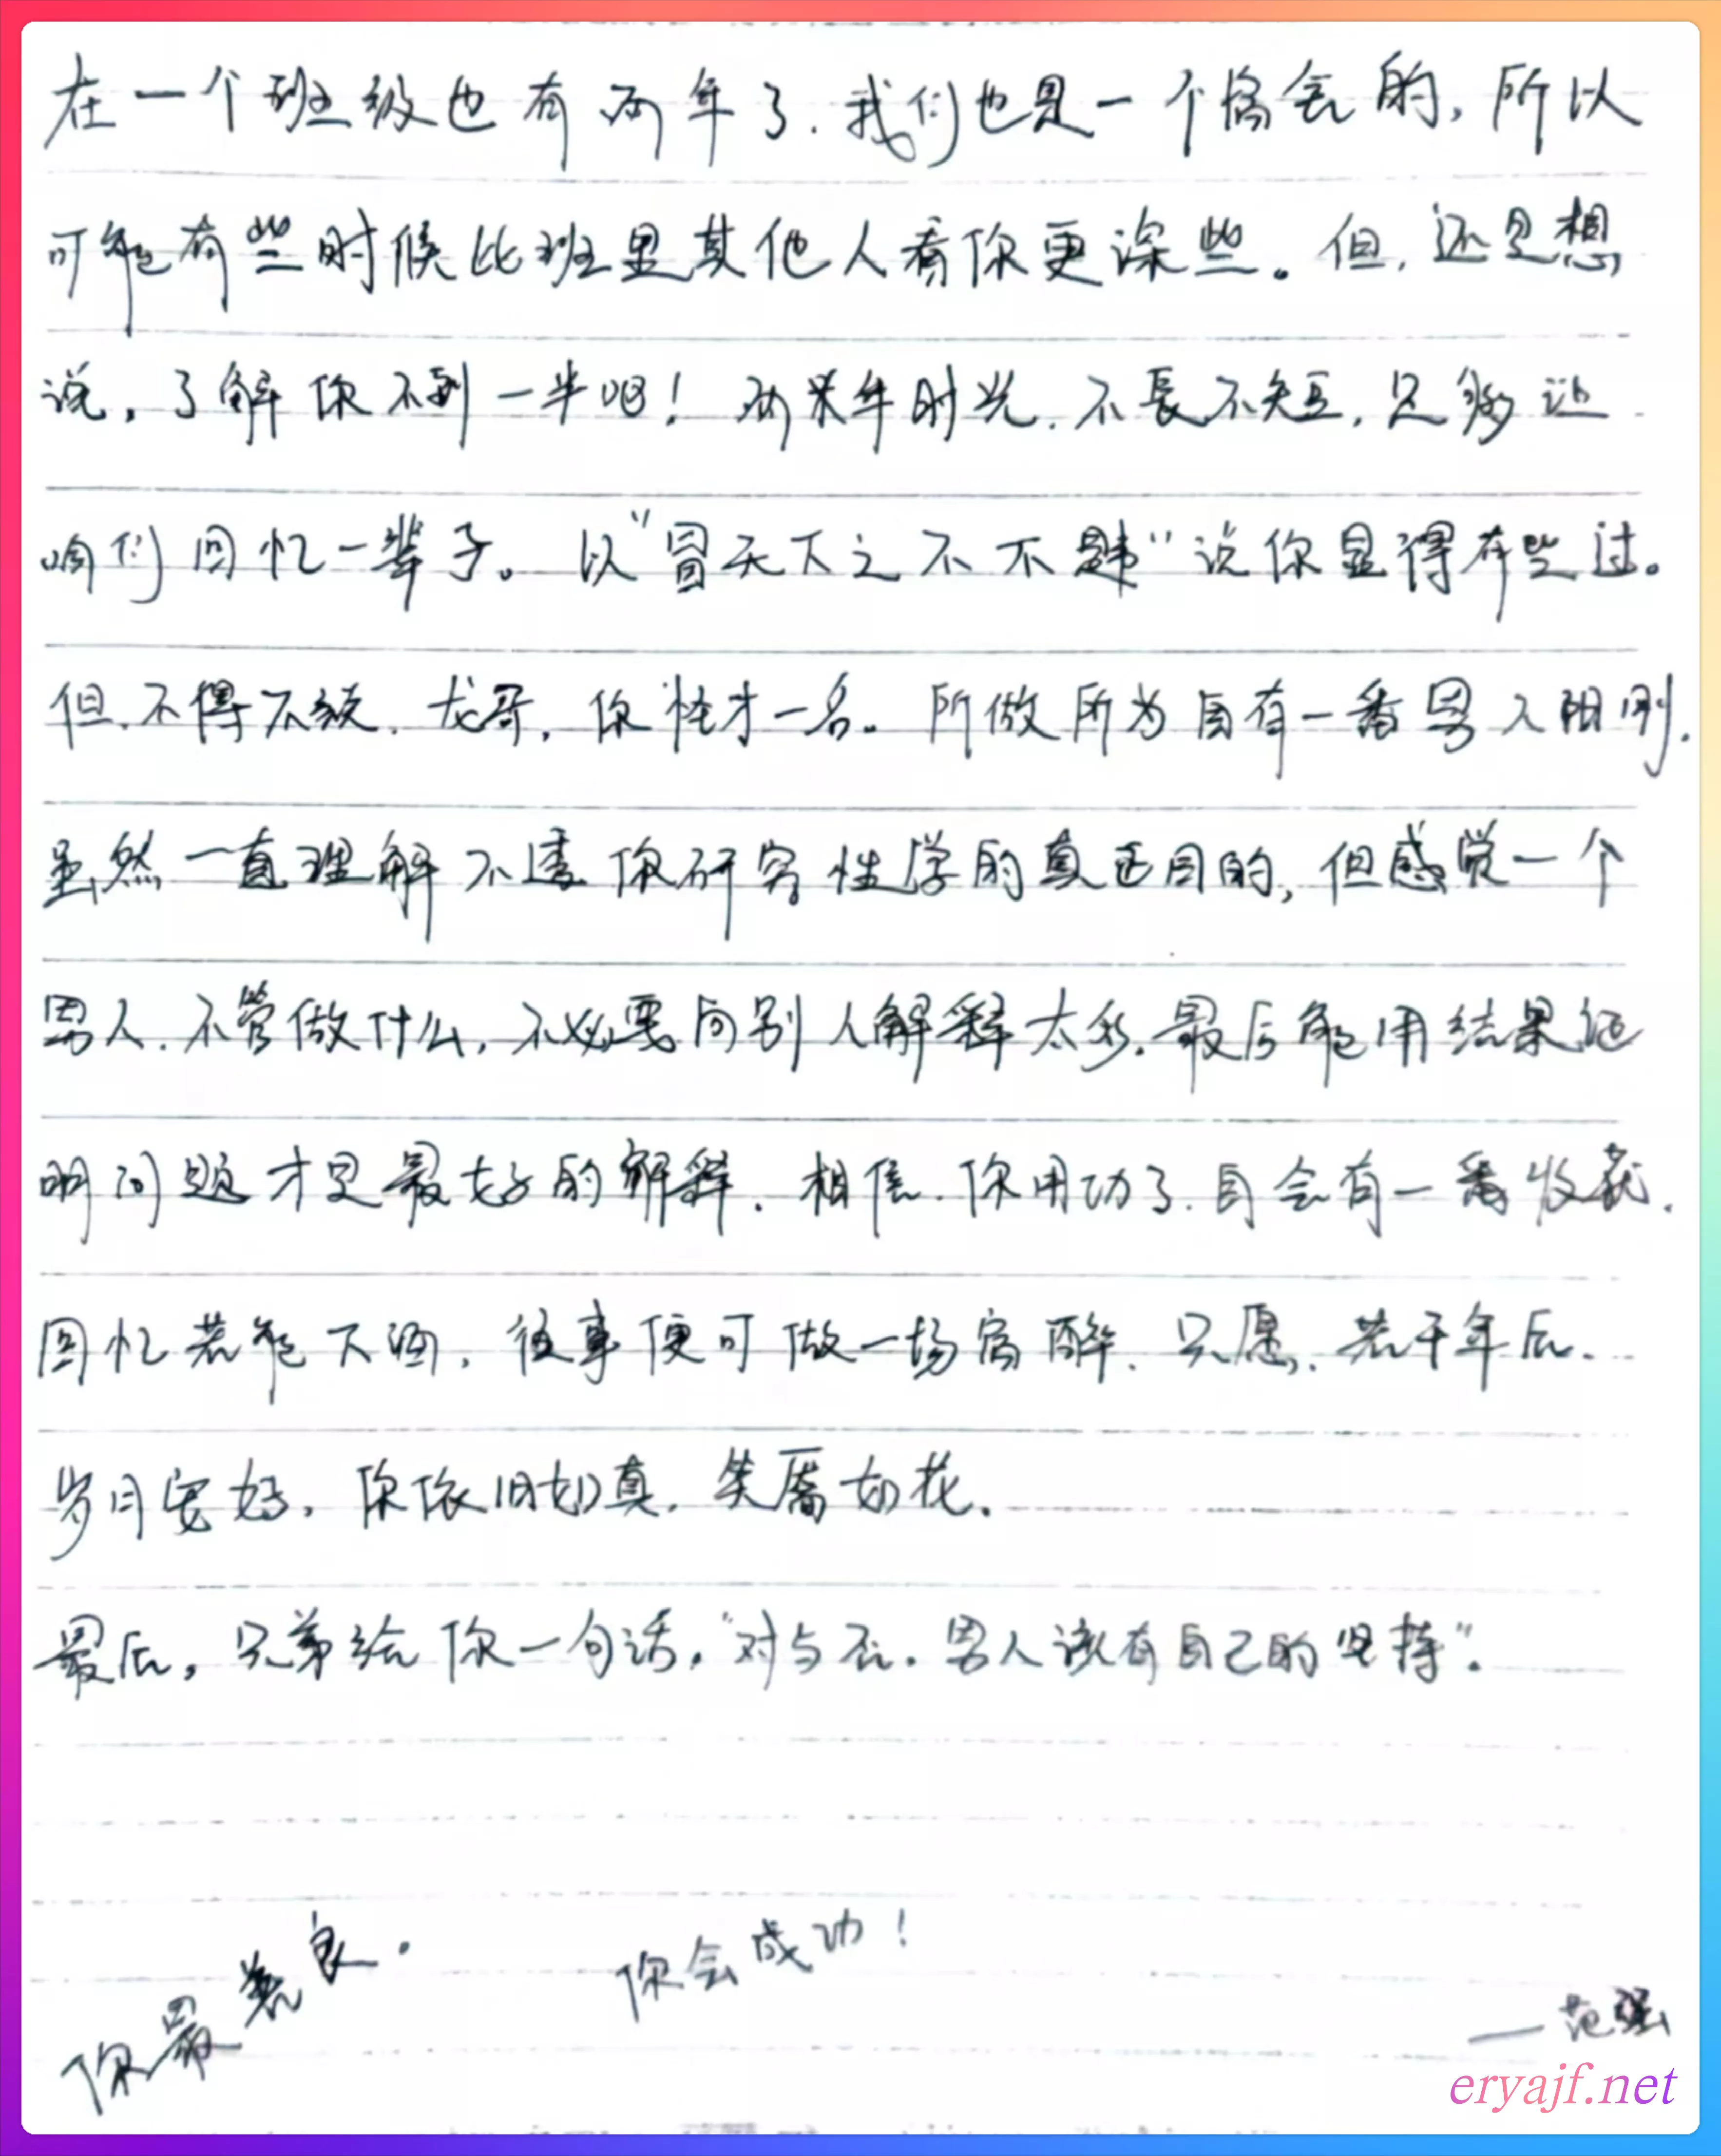 在一个班级也有两年了.我们也是一个宿舍的,所以
可能有些时候比班里其他人看你更深些。但,还是想
说,了解你不到一半吧!两米年时光.不長不短,足够让
咱们回忆一辈子。以"冒天下之不不韪"说你显得有些过。
但.不得不说.龙哥,你怪才一名。所做所为自有一番男人阳刚.
虽然一直理解不透你研究性学的真正目的,但感觉一个
男人.不管做什么,不必要向别人解释太多.最后能用结果证
明问题才是最好的解释.相信.你用功了.自会有一番收获.
回忆若能下酒,往事便可做一场宿醉.只愿.若干年后.
岁月安好,你依旧如真.笑靥如花.
最后,兄弟给你一句话,"对与否.男人该有自己的坚持".
你最善良.
你会成功!
—范强
eryajf.net